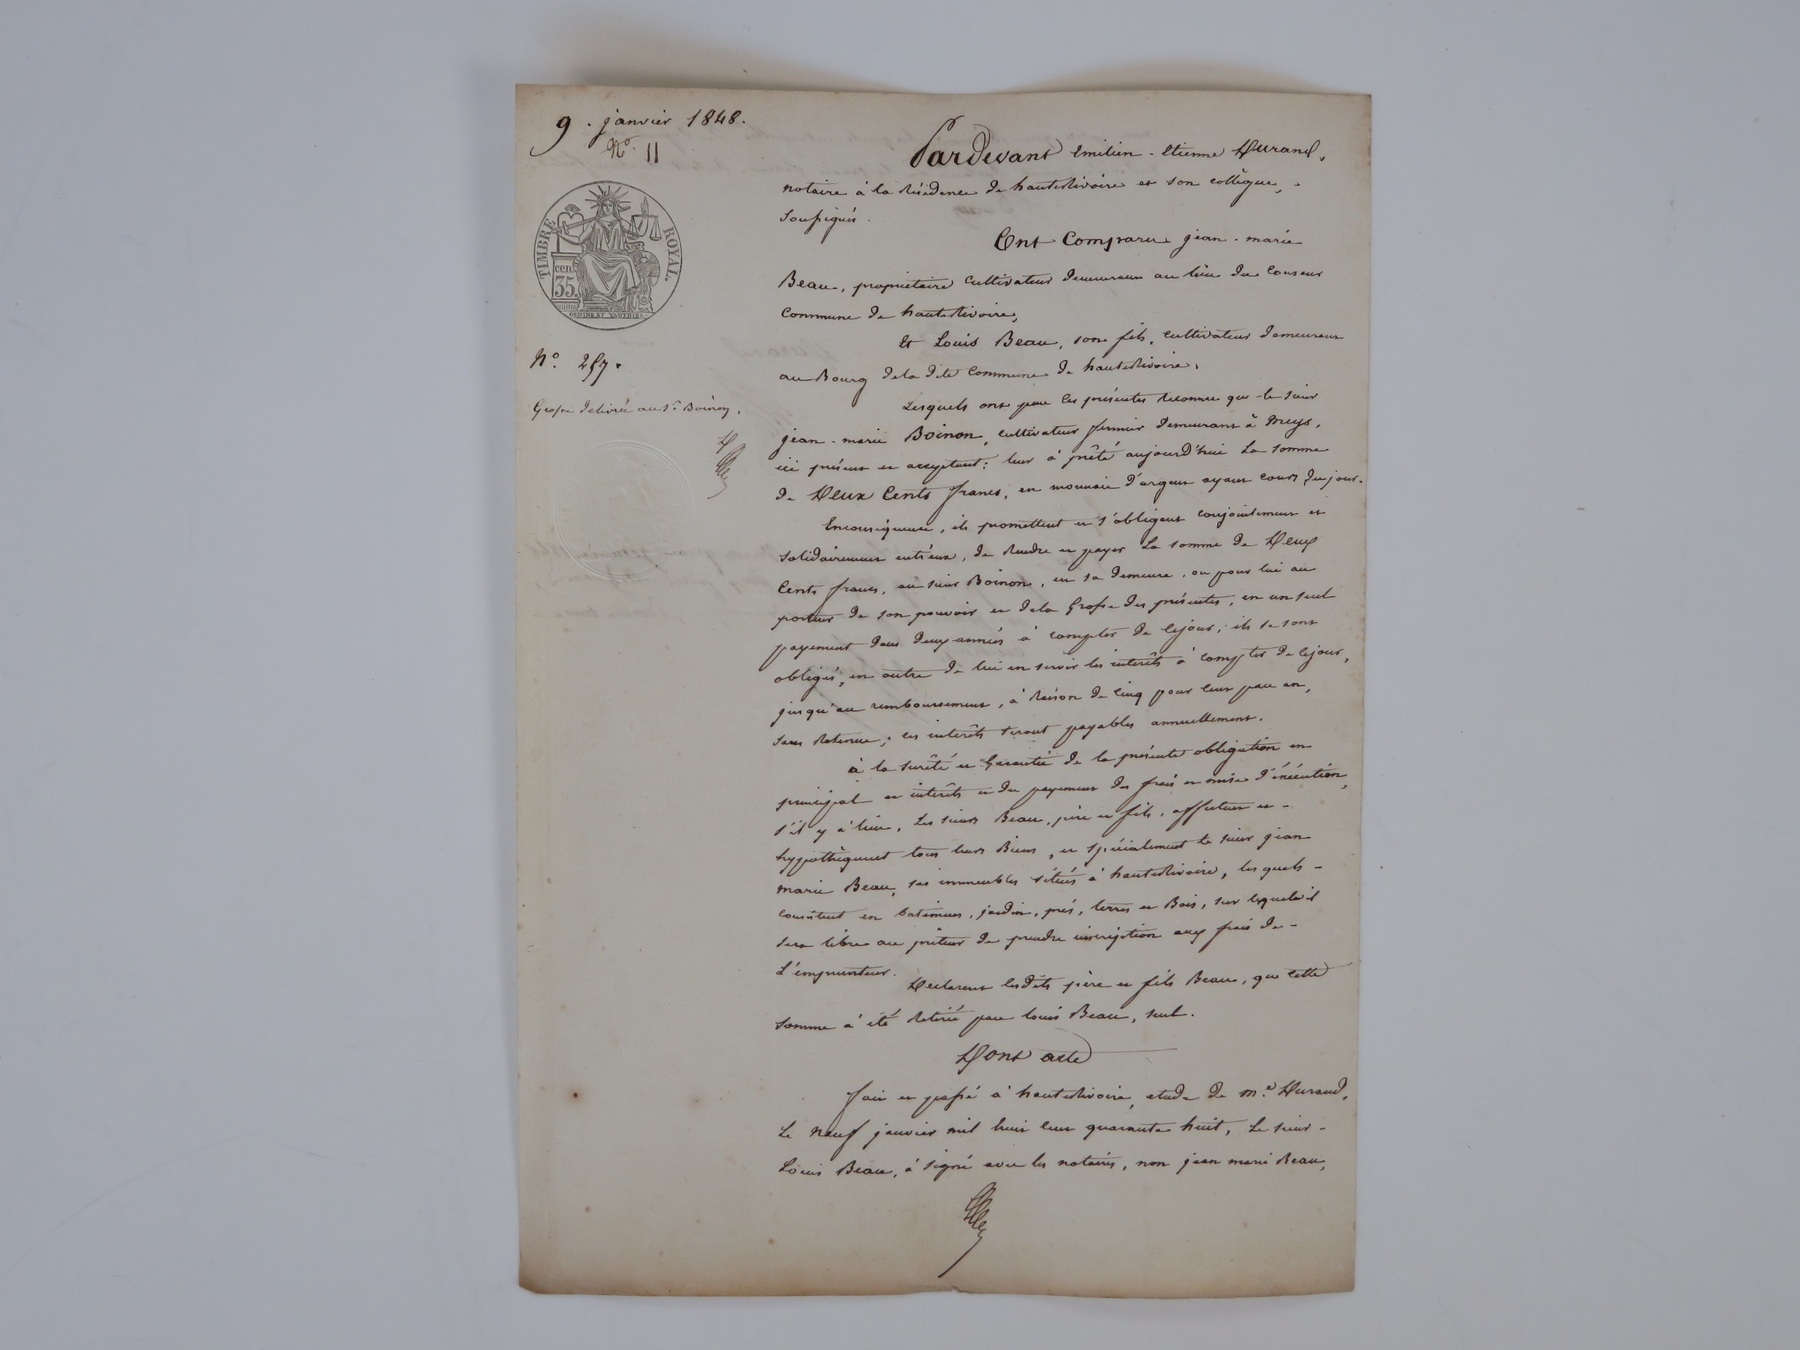 9. janvier 1848.
N.º 11
TIMBRE ROYAL.
cen.
35.
N.º 257.
Grosse delivrée au S.r Boinon.
Pardevant Emilien-Etienne Durand,
notaire à la Résidence de hauterivoire et son collègue,
Soussignés.
Ont Comparu jean-marie
Beau, propriétaire Cultivateur demeurant au lieu du
Commune de hauterivoire,
Et Louis Beau, son fils, cultivateur demeurant
au Bourg de la dite Commune de hauterivoire,
Lesquels ont par ces présentes reconnu que le sieur
jean-marie Boinon, cultivateur fermier demeurant à Meys,
ici présent et acceptant; leur à prêté aujourd'hui La somme
de Deux Cents francs, en monnaie d'argent ayant cours dujour.
Enconséquence, ils promettent et s'obligent conjointement et
solidairement entr'eux, de Rendre et payer La somme de Deux
Cents francs, au sieur Boinon, en sa demeure, ou pour lui au
porteur de son pouvoir et dela Grosse des présentes, en un seul
payement dans deux années à compter de cejour; ils se sont
obligés, en outre de lui en servir les interêts à compter de cejour,
jusqu'au remboursement, à Raison de cinq pour cent par an,
sans Retenue; ces interêts seront payables annuellement.
à la sureté et Garantie de la présente obligation en
principal et interêts et du payement des frais et mise d'éxécution,
s'il y à lieu, Les sieurs Beau, père et fils, affectent et
hypothèquent tous leurs Biens, et spécialement le sieur jean
marie Beau, ses immeubles situés à hauterivoire, lesquels
consistent en batimens, jardin, prés, terres et Bois, sur lesquels il
sera libre au prêteur de prendre inscription aux frais de
L'emprunteur.
Déclarent lesdits père et fils Beau, que cette
somme à été Retirée par Louis Beau, seul.
Dont acte
fait et passé à hauterivoire, etude de m.e Durand,
Le neuf janvier mil huit cent quarante huit, Le sieur
Louis Beau, à signé avec les notaires, non jean marie Beau,